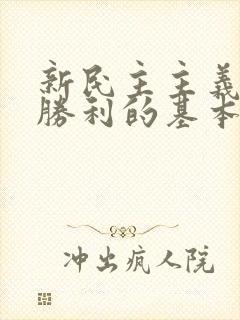 新民主主義
勝利的基本
冲出疯人院